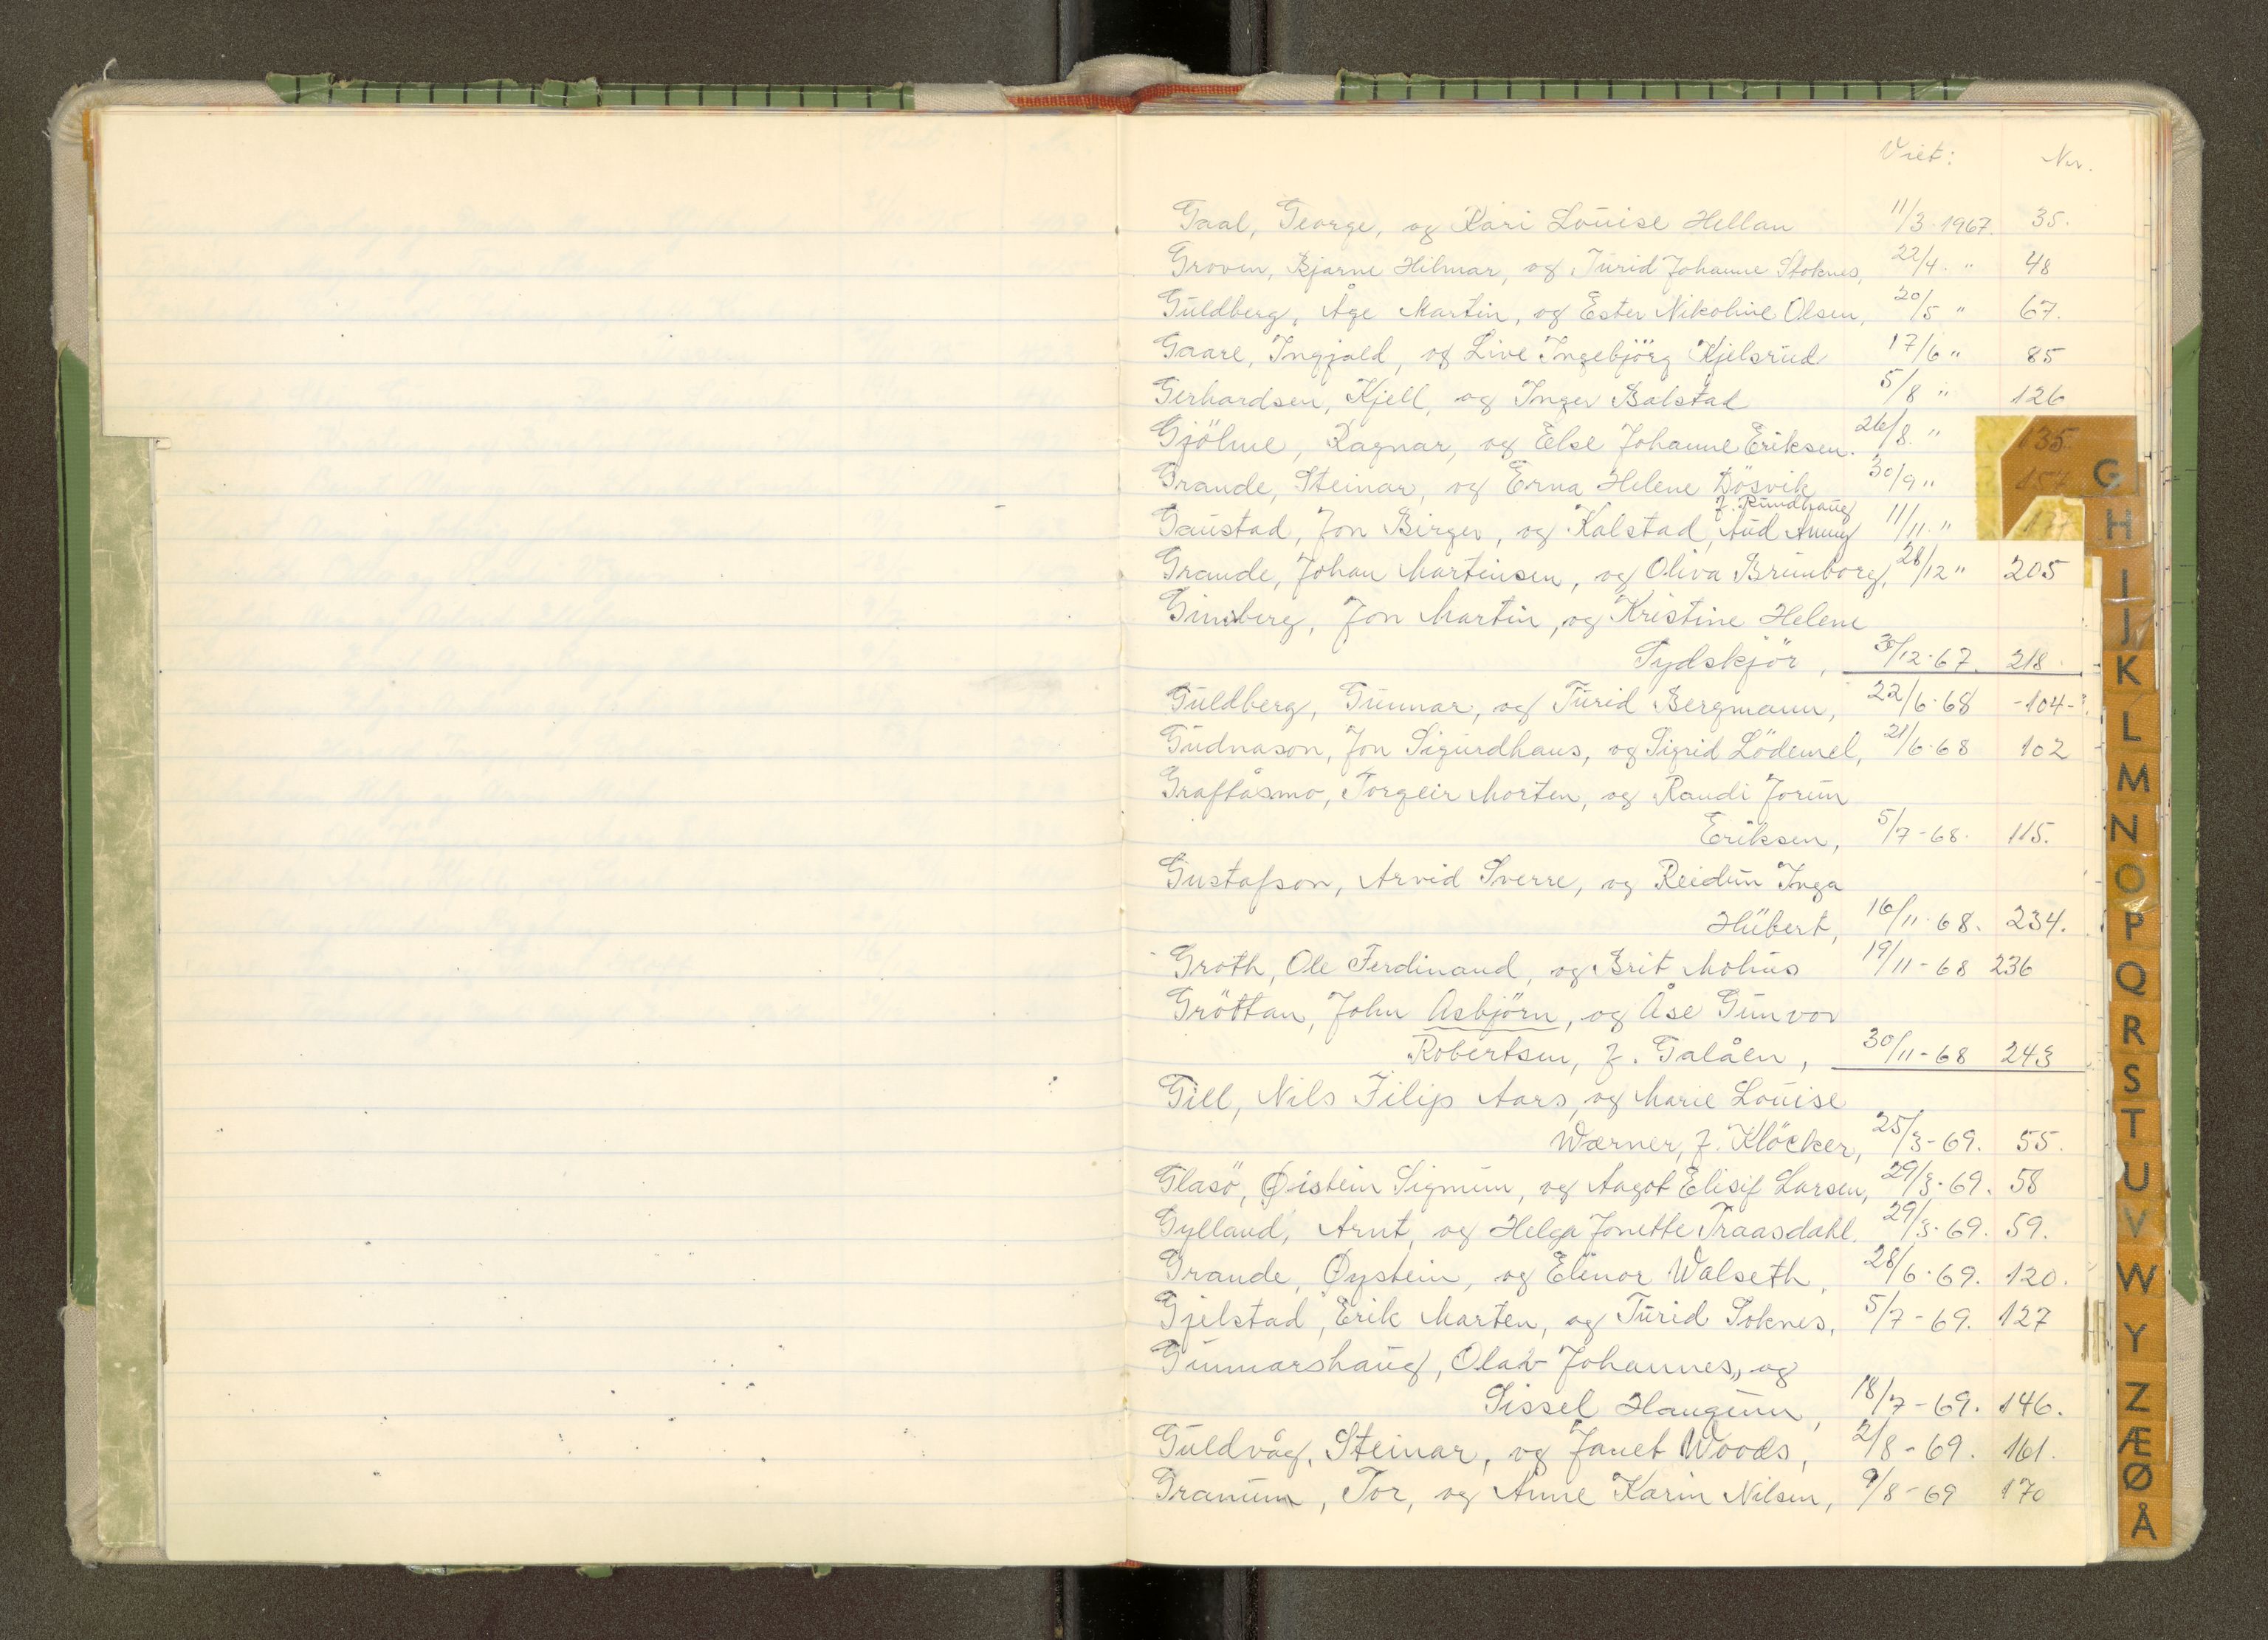 Viet: Nr.
Gaal, George, og Kari Louise Hellan 11/3. 1967. 35.
Groven, Bjarne Hilmar, og Turid Johanne Stoknes, 22/4. " 48
Guldberg, Åge Martin, og Ester Nikoline Olsen, 20/5 " 67.
Gaare, Ingjald, og Live Ingebjörg Kjelsrud 17/6 " 85
Gerhardsen, Kjell, og Inger Balstad 5/8 " 126
Gjölme, Ragnar, og Else Johanne Eriksen. 26/8. " 135.
Grande, Steinar, og Erna Helene Dösvik 30/9 "
f. Rundhaug
Gaustad, Jon Birger, og Kalstad, Aud Anny 11/11. "
Grande, Johan Martinsen, og Oliva Brunborg, 28/12 " 205
Gimberg, Jon Martin, og Kristine Helene
Sydskjör, 30/12.67. 218.
Guldberg, Gunnar, og Turid Bergmann, 22/6.68 -104-
Gudnason, Jon Sigurdhans, og Sigrid Lödemel, 21/6.68 102
Graftåsmo, Torgeir Morten, og Randi Jorun
Eriksen, 5/7-68. 115.
Gustafson, Arvid Sverre, og Reidun Inga
Hübert, 16/11.68. 234.
Groth, Ole Ferdinand, og Brit Mohus 19/11-68 236
Gröttan, John Asbjörn, og Åse Gunvor
Robertsen, f. Galåen, 30/11-68 243
Gill, Nils Filip Aars, og Marie Louise
Wærner, f. Klöcker, 25/3-69. 55.
Glasö, Øistein Sigmun, og Aagot Elisif Larsen, 29/3.69. 58
Gylland, Arnt, og Helga Jonette Traasdahl. 29/3.69. 59.
Grande, Øystein, og Elinor Walseth, 28/6.69. 120.
Gjelstad, Erik Marten, og Turid Soknes, 5/7-69. 127
Gunnarshaug, Olav Johannes, og
Sissel Haugum, 18/7-69. 146.
Guldvåg, Steinar, og Janet Woods, 2/8-69. 161.
Granum, Tor, og Anne Karin Nilsen, 9/8-69 170
G
H
I
J
K
L
M
N
O
P
Q
R
S
T
U
V
W
Y
Z
Æ
Ø
Å